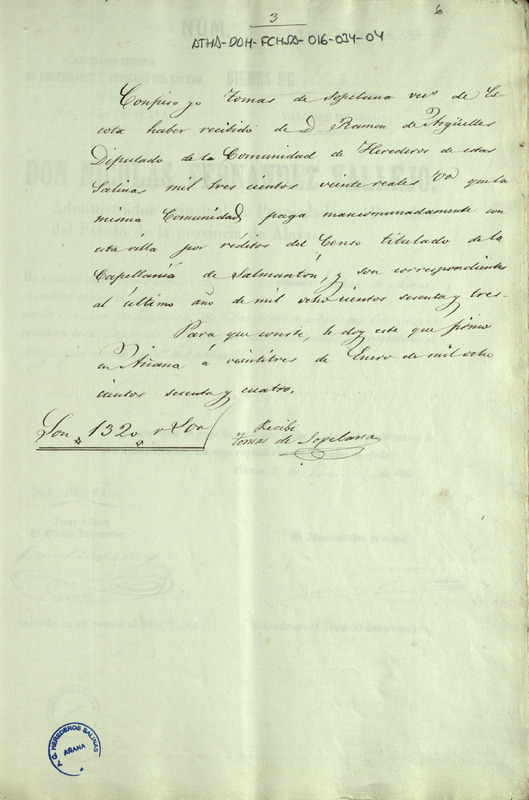 3
6
ATHA-DOH-FCHSA-016-034-04
Confieso yo Tomas de Sopelana vec.º de Es
cota haber recibido de D. Ramon de Argüelles
Diputado de la Comunidad de Herederos de estas
Salinas mil tres cientos veinte reales Vn que la
misma Comunidad paga mancomunadamente con
esta villa por réditos del Censo titulado de la
Capellanía de Salmantón, y son correspondientes
al último año de mil ochocientos sesenta y tres.
Para que conste, le doy este que firmo
en Añana á veintitres de Enero de mil ocho
cientos sesenta y cuatro.
Son 1320 r
Recibí
Tomas de Sopelana
G. HEREDEROS SALINAS
AÑANA